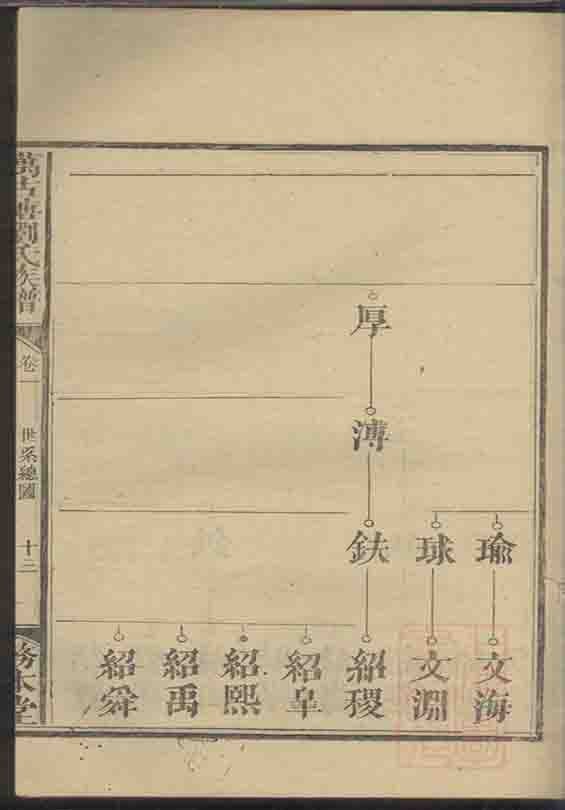 厚
溥
瑜
球
鈇
文海
文淵
紹稷
紹皐
紹熙
紹禹
紹舜
萬古塘劉氏族譜
卷一
世系總圖
十二
務本堂